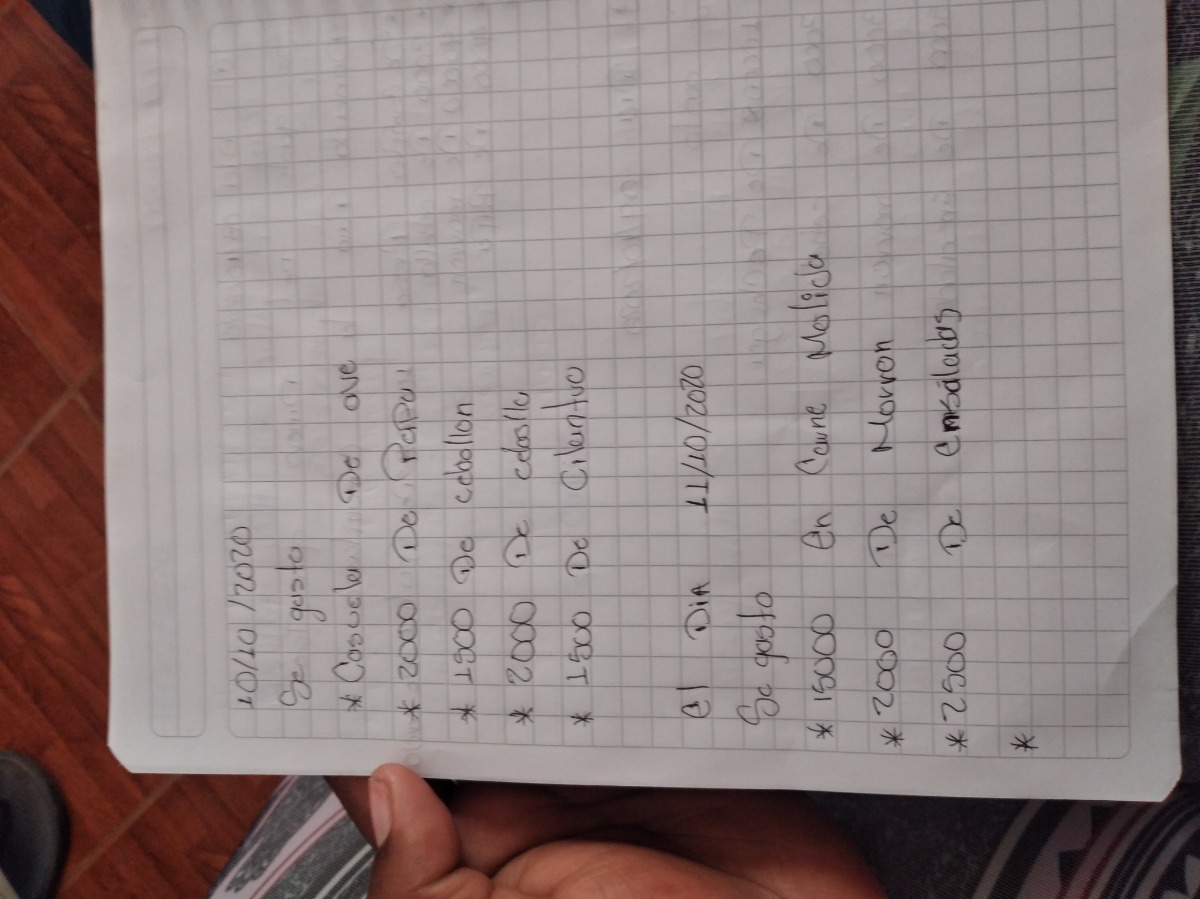 10/10/2020
Se gasto
* Casuela De ave
* 2000 De Papa
* 1500 De cebollon
* 2000 De cebolla
* 1500 De Cilantro
El DiA 11/10/2020
Se gasto
* 15000 En Carne Molida
* 2000 De Morron
* 2500 De Ensaladas
*